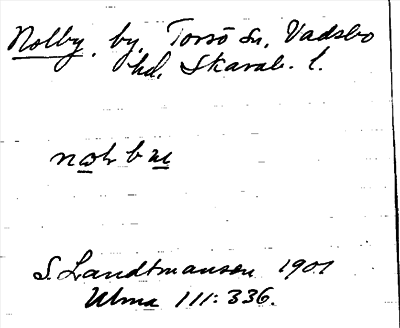 Nolby, by, Torsö sn, Vadsbo
hd, Skarab. l.
S. Landtmanson 1901
Ulma 111:336.